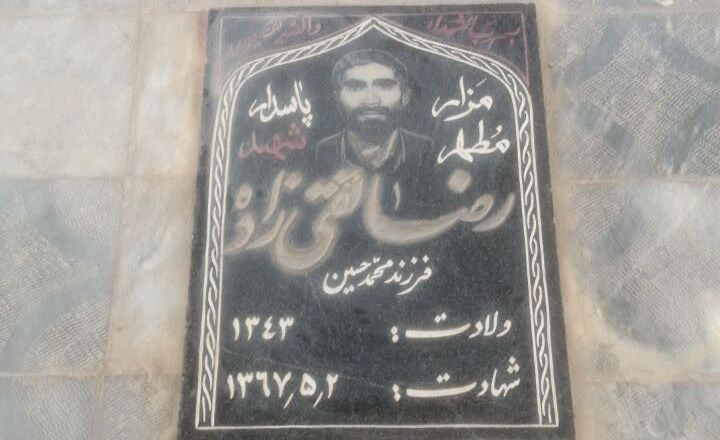 بسم رب الشهداء والصدیقین
مزار پاسدار
مطهر شهید
رضا تقی زاده
فرزند محمد حسین
ولادت: ۱۳۴۳
شهادت: ۱۳۶۷٫۵٫۲